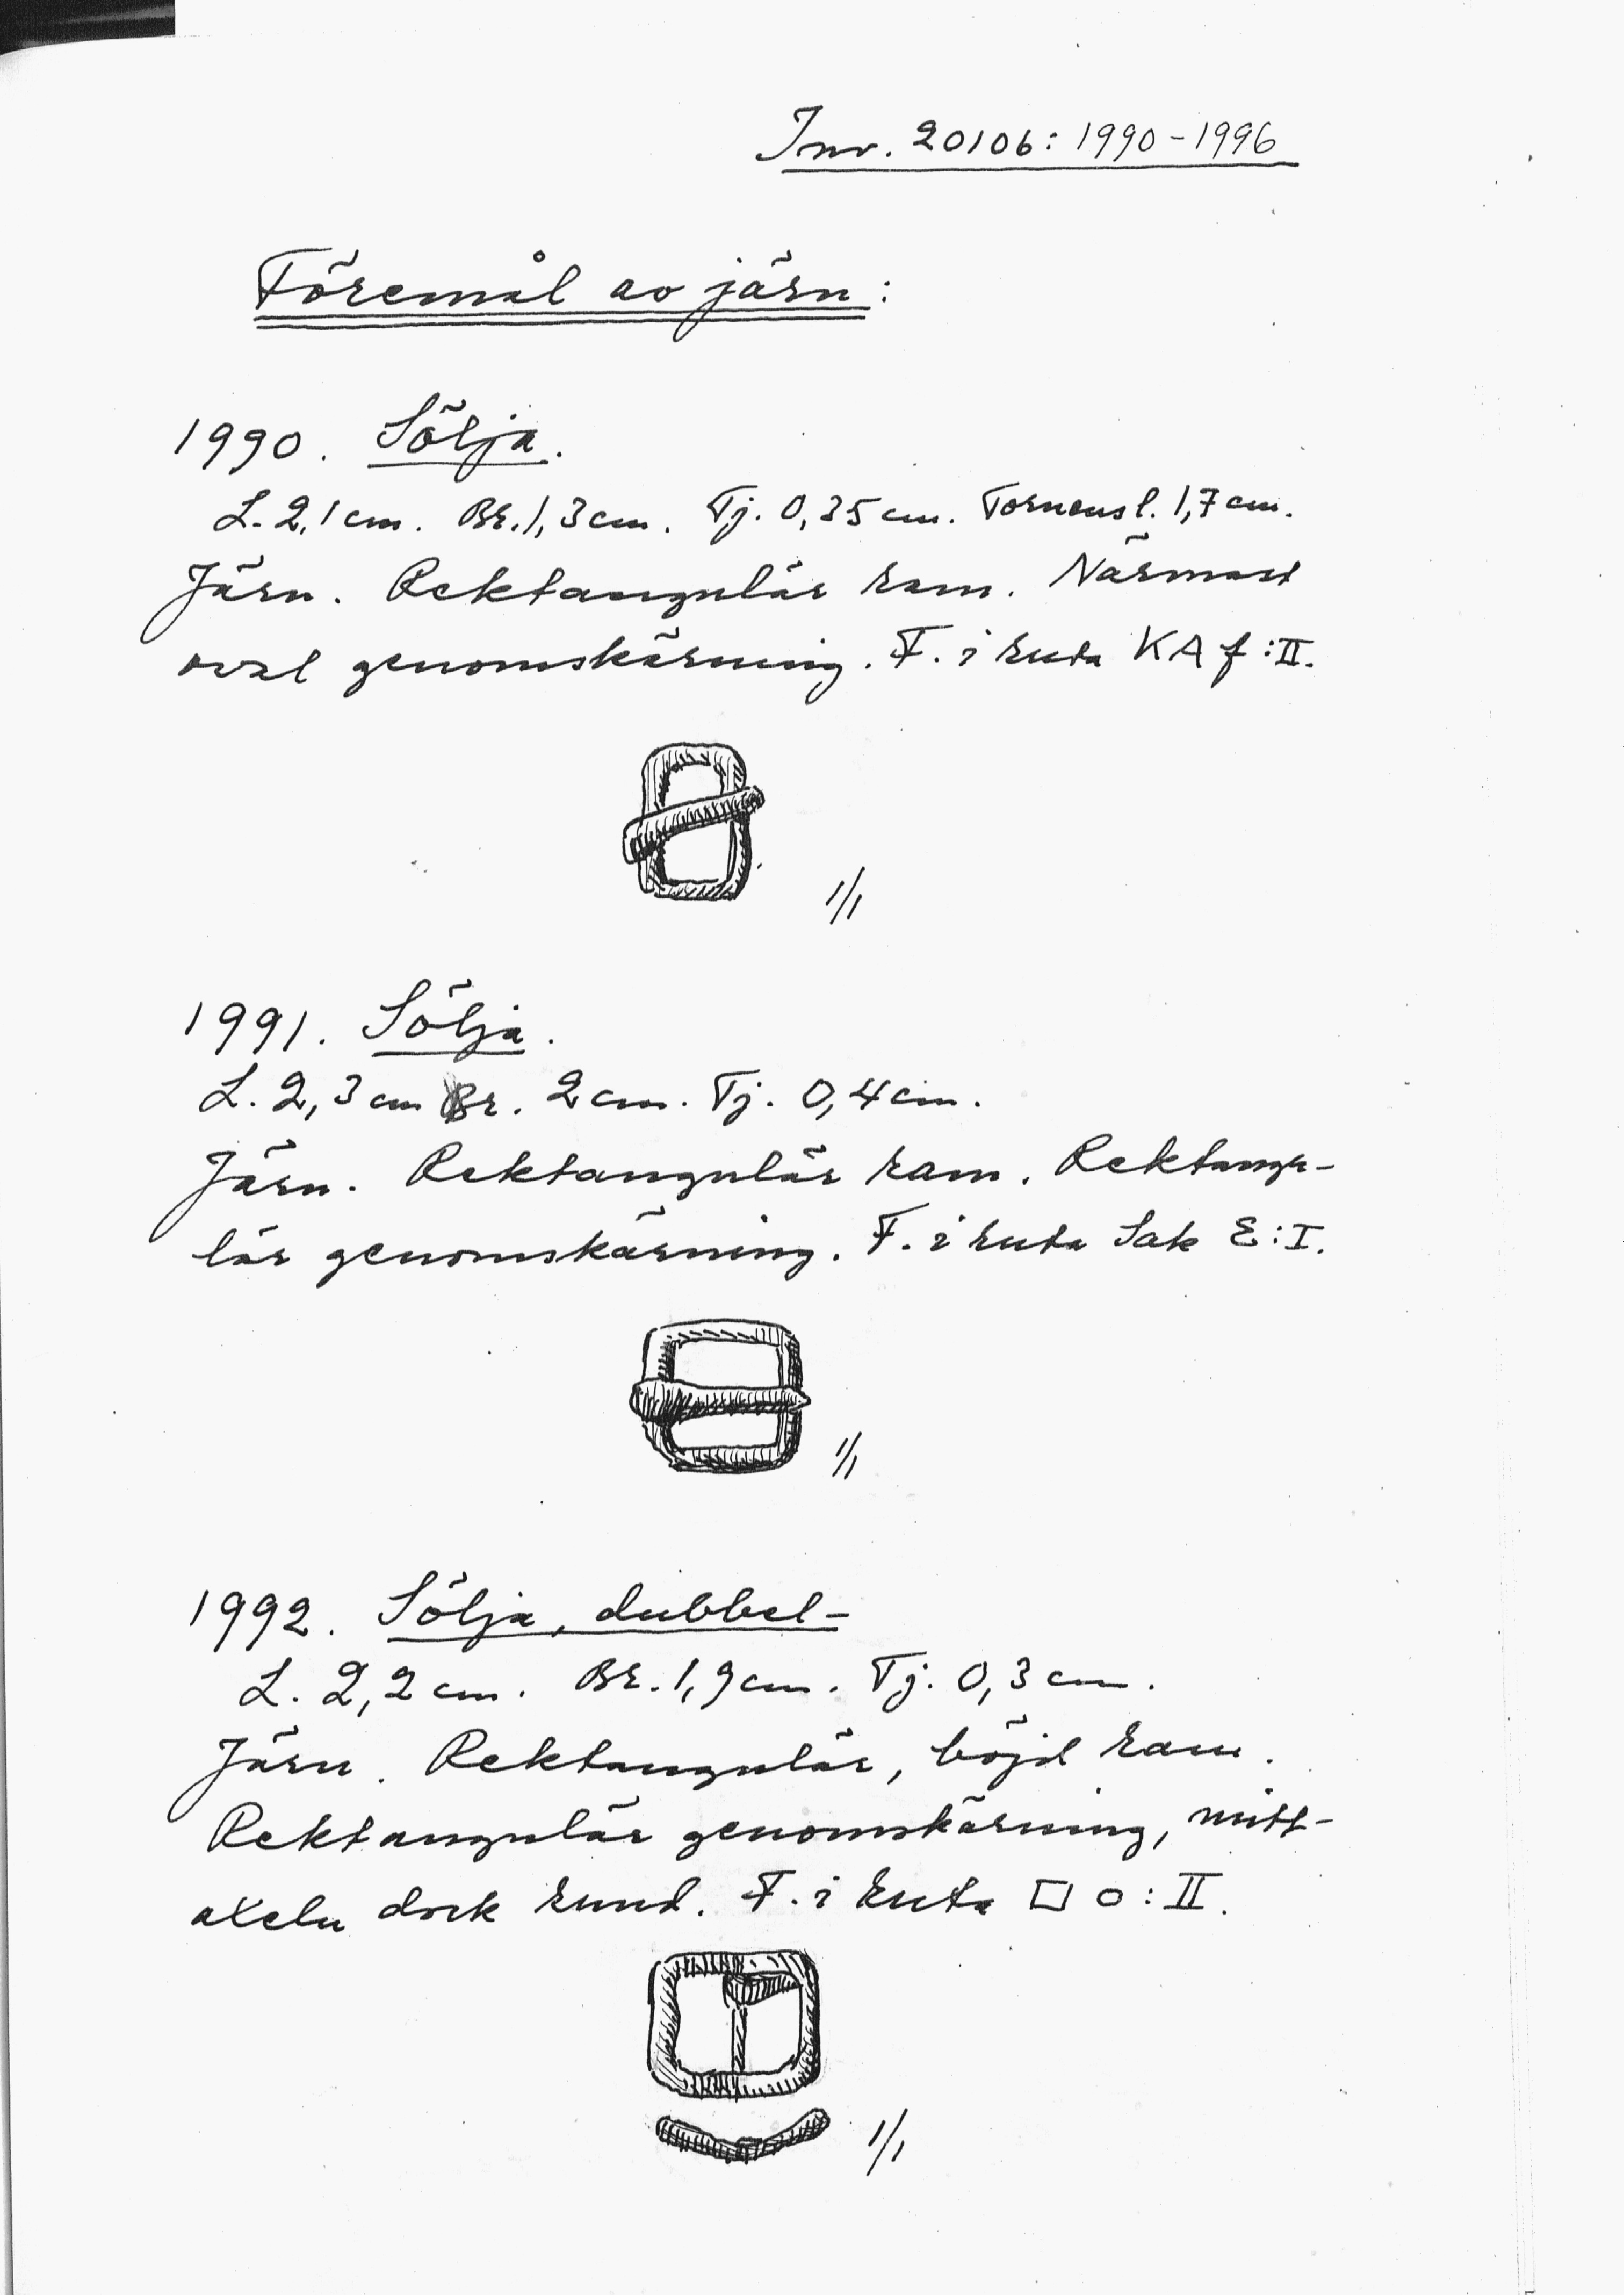 Inv. 20106: 1990-1996
Föremål av järn:
1990. Sölja.
L. 2,1 cm. Br. 1,3 cm. Tj. 0,35 cm. Tornens l. 1,7 cm.
Järn. Rektangulär ram. Närmast
oval genomskärning. F. i ruta KA f:II.
1/1
1991. Sölja.
L. 2,3 cm Br. 2 cm. Tj. 0,4 cm.
Järn. Rektangulär ram. Rektangu-
lär genomskärning. F. i ruta Sak E:I.
1/1
1992. Sölja, dubbel-
L. 2,2 cm. Br. 1,9 cm. Tj. 0,3 cm.
Järn. Rektangulär, böjd ram.
Rektangulär genomskärning, mitt-
axeln dock rund. F. i ruta □ o:II.
1/1